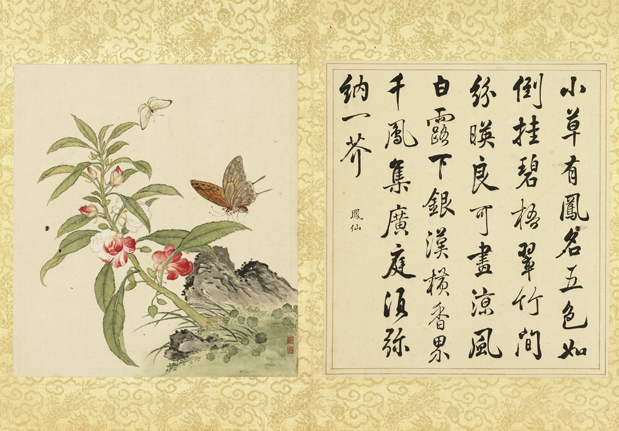 小草有鳳名五色如
倒挂碧梧翠竹間
紛暎良可畫涼風
白露下銀漢橫香界
千鳳集廣庭須彌
納一芥
鳳仙